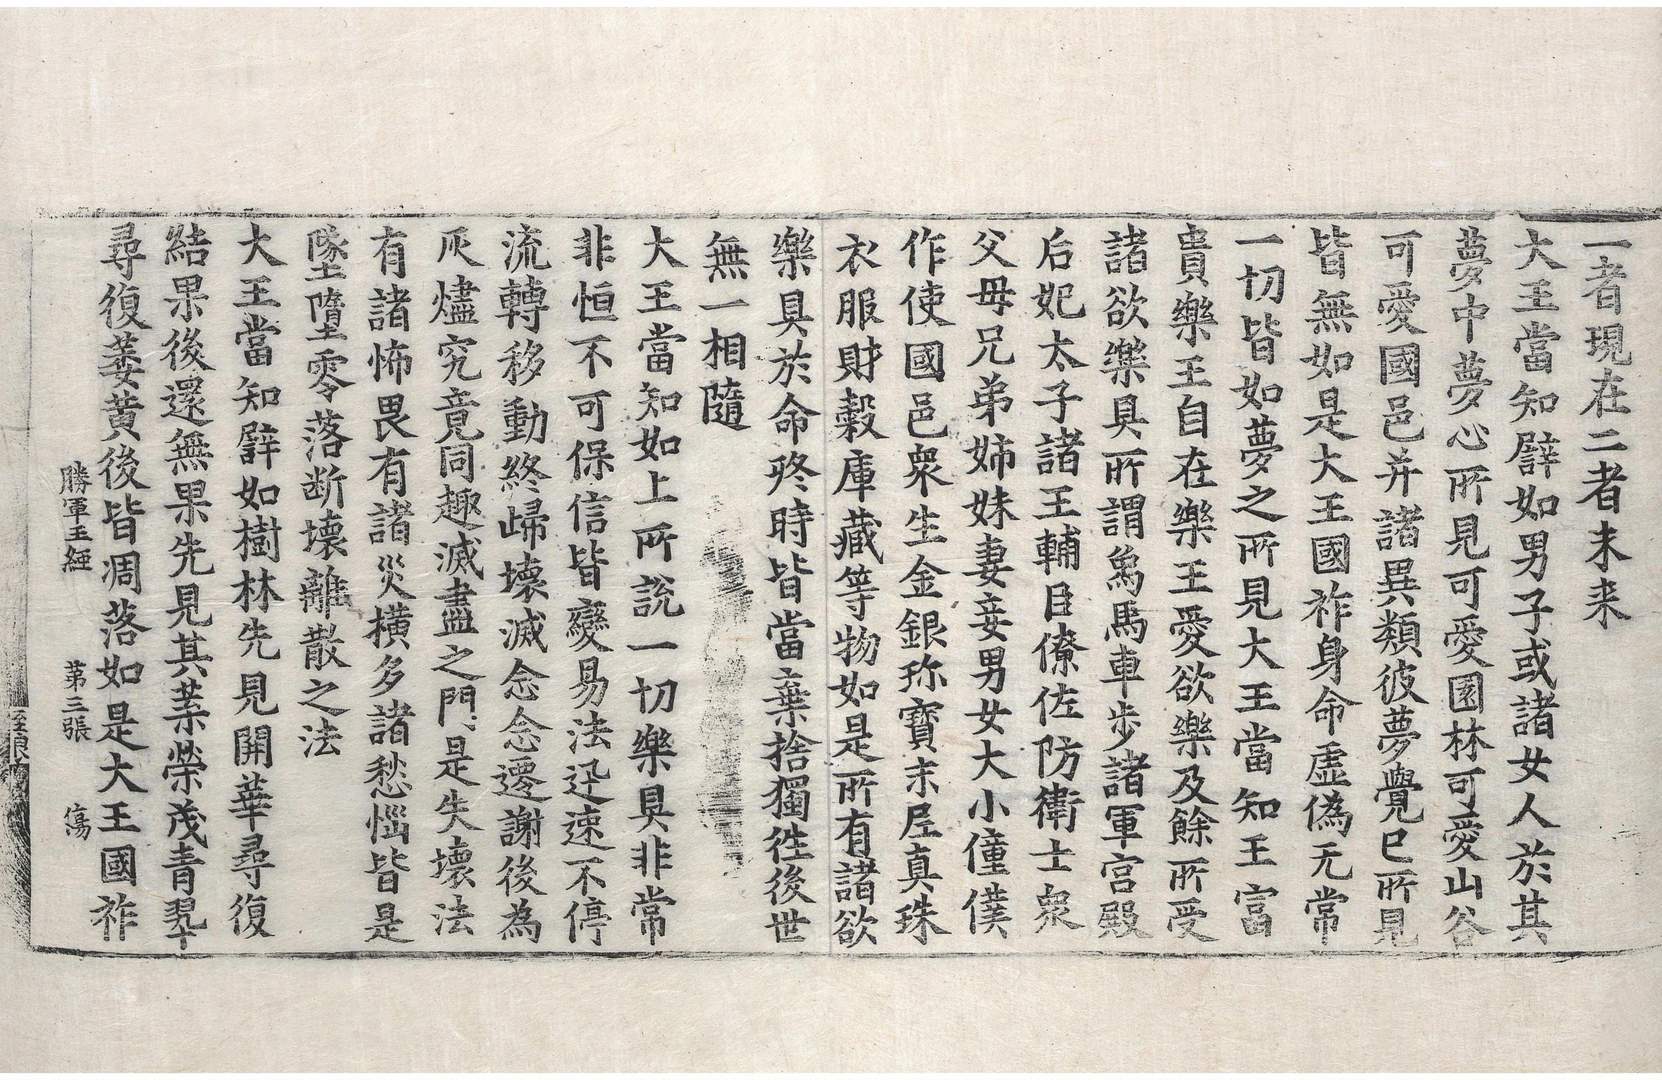 一者現在二者未来
大王當知譬如男子或諸女人於其
夢中夢心所見可愛園林可愛山谷
可愛國邑并諸異類彼夢覺已所見
皆無如是大王國祚身命虛僞无常
一切皆如夢之所見大王當知王富
貴樂王自在樂王愛欲樂及餘所受
諸欲樂具所謂象馬車步諸軍宮殿
后妃太子諸王輔臣僚佐防衛士衆
父母兄弟姉妹妻妾男女大小僮僕
作使國邑衆生金銀珎寶末尼真珠
衣服財穀庫藏等物如是所有諸欲
樂具於命終時皆當棄捨獨徃後世
無一相隨
大王當知如上所說一切樂具非常
非恒不可保信皆變易法迅速不停
流轉移動終歸壞滅念念遷謝後為
灰燼究竟同趣滅盡之門是失壞法
有諸怖畏有諸災横多諸愁惱皆是
墜墮零落断壞離散之法
大王當知譬如樹林先見開華尋復
結果後還無果先見其葉榮茂青翠
尋復萎黄後皆凋落如是大王國祚
勝軍王經 第三張 傷